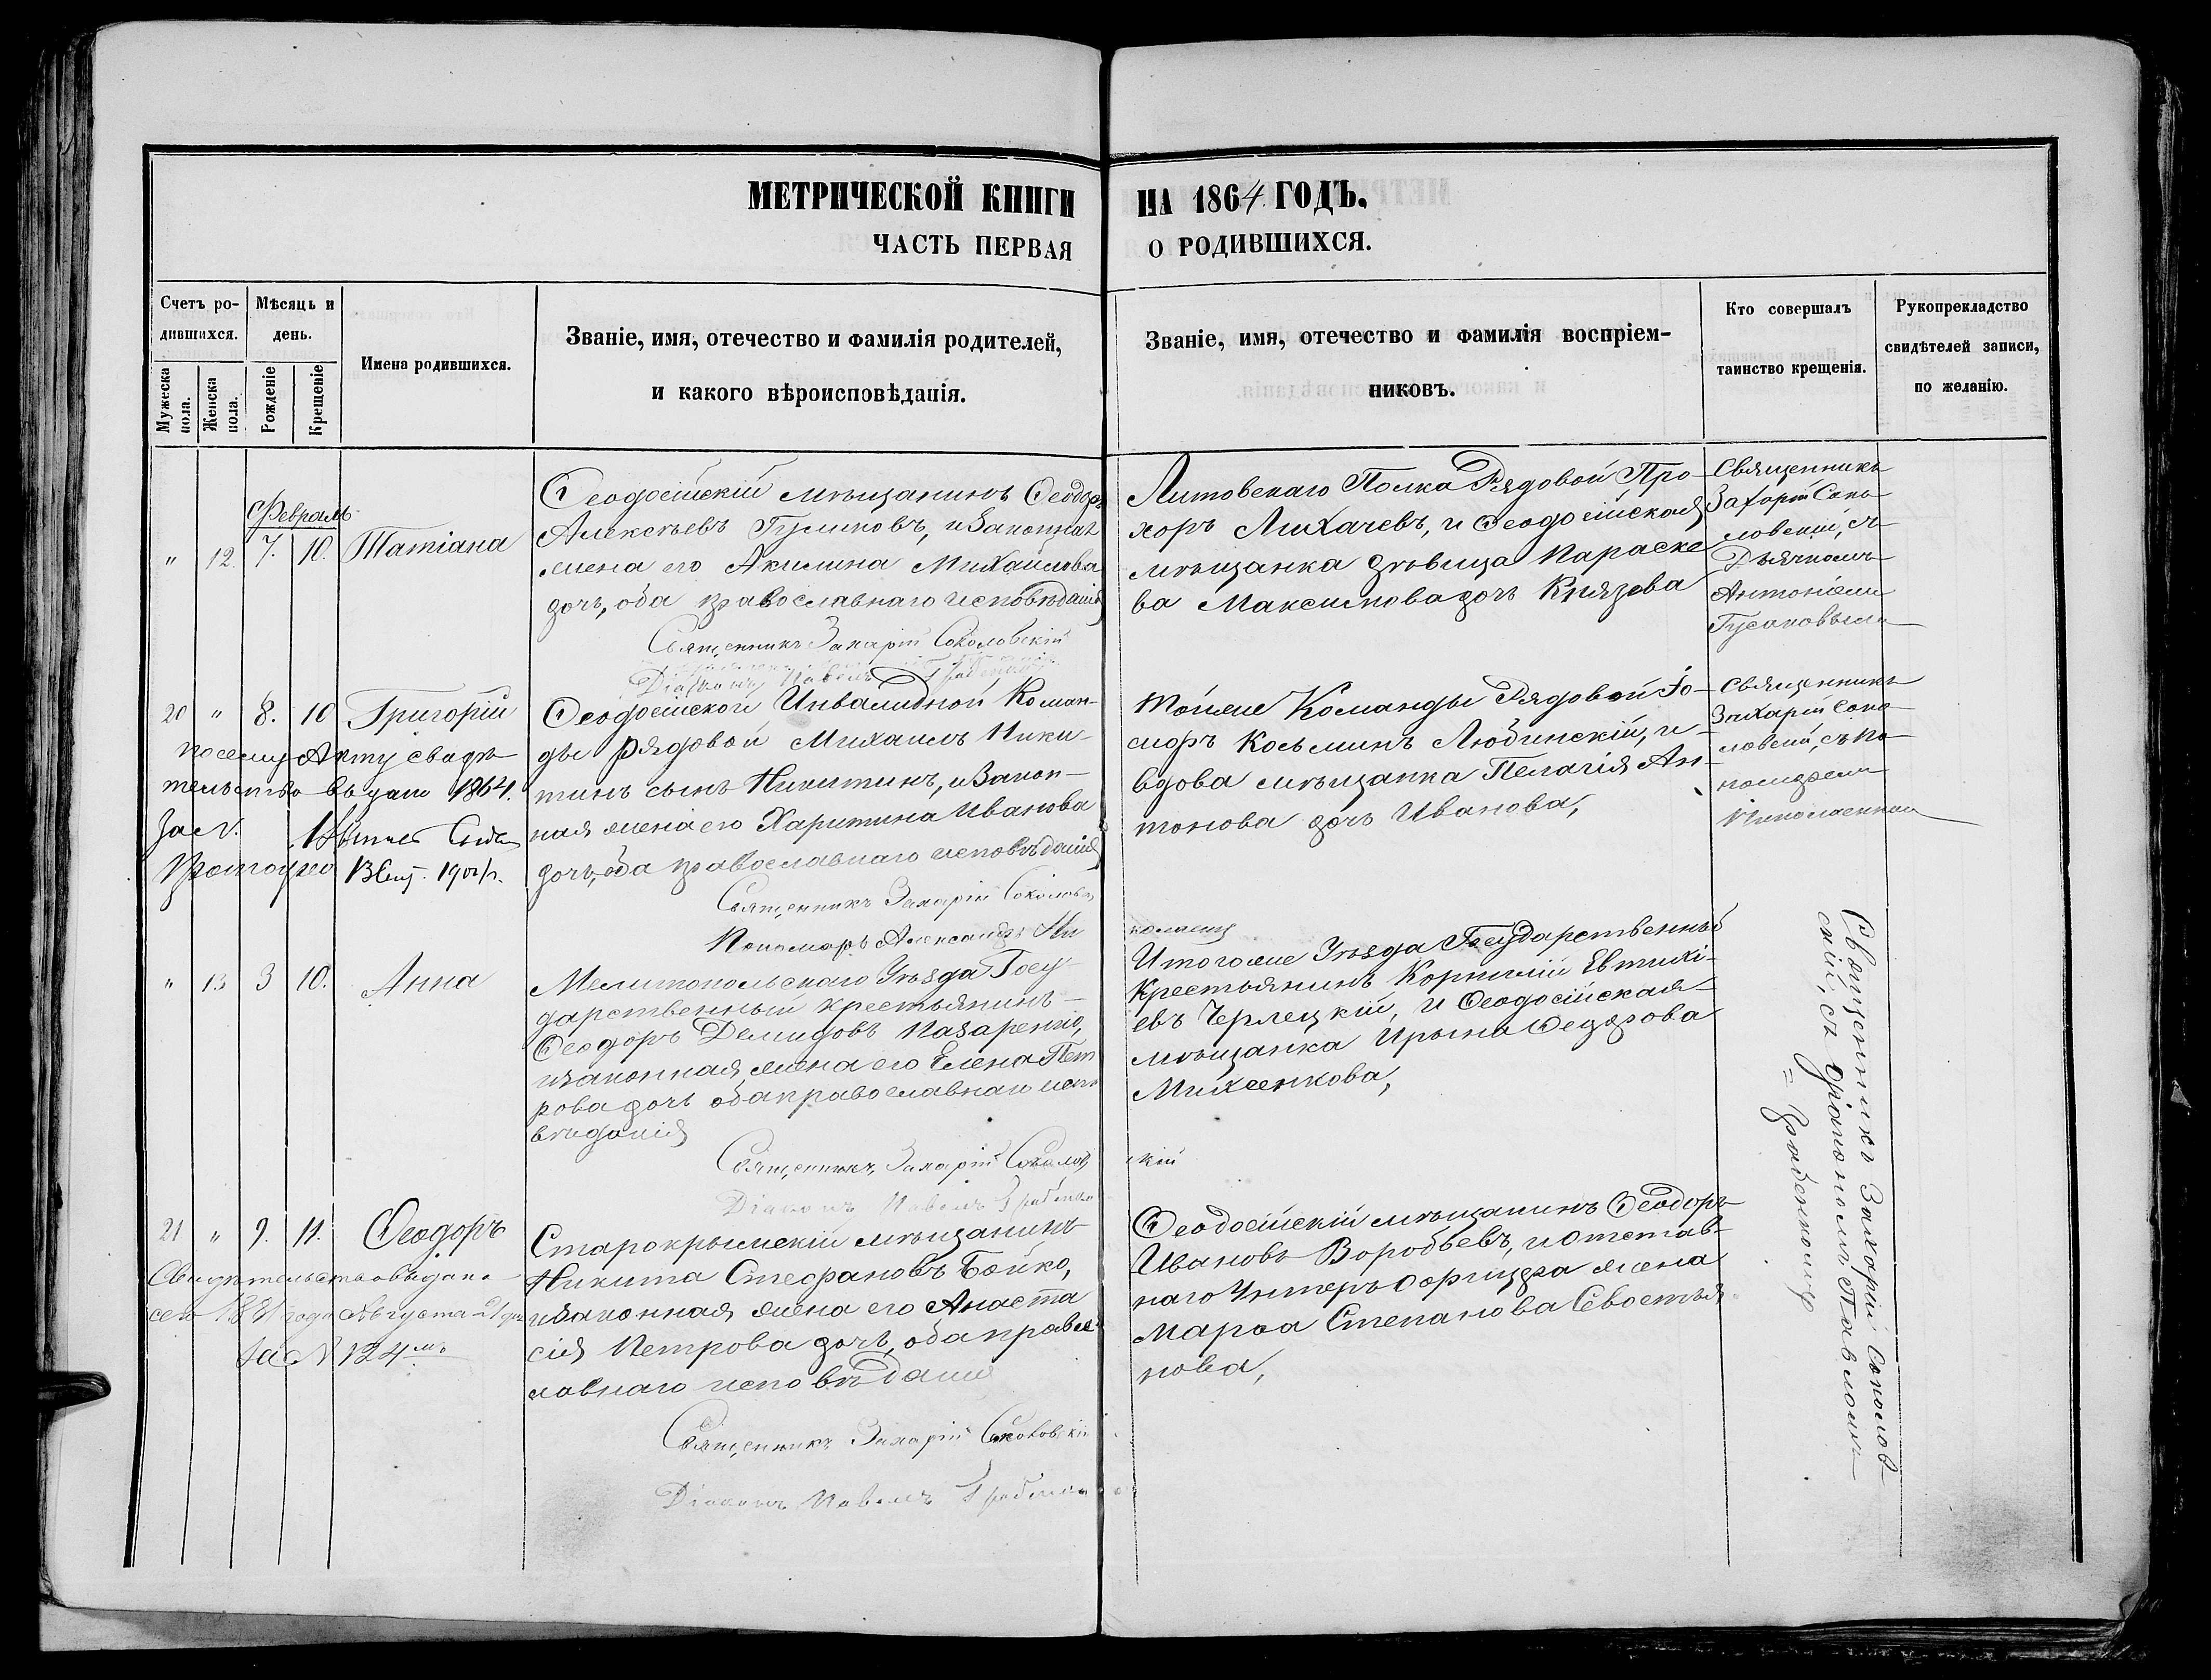 МЕТРИЧЕСКОЙ КНИГИ НА 1864 ГОДЪ.
ЧАСТЬ ПЕРВАЯ О РОДИВШИХСЯ.
Счетъ ро-
дившихся.
Мужеска пола.
Женска пола.
Мѣсяцъ и
день.
Рожденіе
Крещеніе
Имена родившихся.
Званіе, имя, отечество и фамилія родителей,
и какого вѣроисповѣданія.
Званіе, имя, отечество и фамилія воспріем-
никовъ.
Кто совершалъ
таинство крещенія.
Рукоприкладство
свидѣтелей записи,
по желанію.
Февраль
" 12. 7. 10. Татіана
Ѳеодосійскій мѣщанинъ Ѳеодоръ
Алексѣевъ Гуликовъ, и Законная
жена его Акилина Михайлова
дочь, оба православнаго исповѣданія
Священникъ Захарій Соколовскій
Діаконъ Павелъ
Литовскаго Полка Рядовой Про-
хоръ Лихачевъ, и Ѳеодосійская
мѣщанка дѣвица Параске
ва Максимова дочь Князева
Священникъ
Захарій Соко-
ловскій, съ
Дьячкомъ
Антоніемъ
Гусаковымъ
20 " 8. 10 Григорій
По сему Акту свидѣ-
тельство выдано 1864.
За №.
13 Сент. 190
Ѳеодосійской Инвалидной Коман-
ды рядовой Михаилъ Ники-
тинъ сынъ Никитинъ, и Закон-
ная жена его Харитина Иванова
дочь, оба православнаго исповѣданія
Священникъ Захарій Соколовскій
Пономарь Александръ Ни
колаенко
Тойже Команды Рядовой Іо-
сифъ Косьминъ Любинскій, и
вдова мѣщанка Пелагія Ан-
тонова дочь Иванова,
Священникъ
Захарій Соко-
ловскій, съ По-
номаремъ
Николаенкомъ
" 13 3 10. Анна
Мелитопольскаго Уѣзда Госу-
дарственный крестьянинъ
Ѳеодоръ Демидовъ Назаренко,
и законная жена его Елена Пет
рова дочь оба православнаго испо
вѣданія
Священникъ Захарій Соколов
скій
Діаконъ Павелъ
И тогоже Уѣзда Государственный
Крестьянинъ Корнилій Евтихі-
евъ Черлецкій, и Ѳеодосійская
мѣщанка Ирина Ѳедорова
Михеенкова,
Священникъ Захарій Соколов
скій, съ діакономъ Павломъ
Грабенкомъ
21 " 9. 11. Ѳеодоръ
Свидѣтельство выдано
сего 1881 года Августа 21 дня
за № 124
Старокрымскій мѣщанинъ
Никита Стефановъ Бойко,
и законная жена его Анаста
сія Петрова дочь, оба правос
лавнаго исповѣданія
Священникъ Захарій Соколовскій
Діаконъ Павелъ
Ѳеодосійскій мѣщанинъ Ѳеодоръ
Ивановъ Воробьевъ, и отстав-
наго Унтеръ Офицера жена
Марѳа Степанова Севостья-
нова,